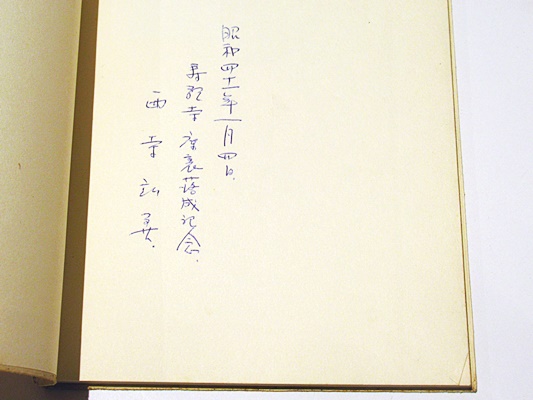 昭和四十一年一月四日.
寺庫裏落成記念.
西寺